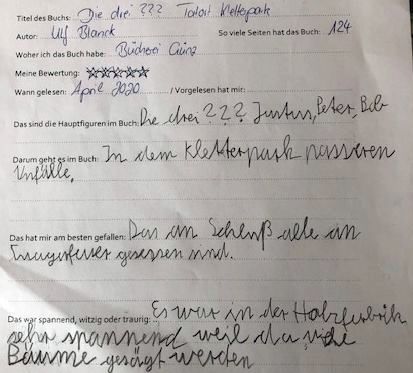 Titel des Buchs: Die drei ??? Tatort Kletterpark
Autor: Ulf Blanck So viele Seiten hat das Buch: 124
Woher ich das Buch habe: Bücherei Günz
Meine Bewertung: ☆☆☆☆☆
Wann gelesen: April 2020 / Vorgelesen hat mir:
Das sind die Hauptfiguren im Buch: Die drei ??? Justus, Peter, Bob
Darum geht es im Buch: In dem Kletterpark passieren
Unfälle.
Das hat mir am besten gefallen: Das am Schluß alle am
Lagerfeuer gesessen sind.
Das war spannend, witzig oder traurig: Es war in der Holzfabrik
sehr spannend weil da viele
Bäume gesägt werden